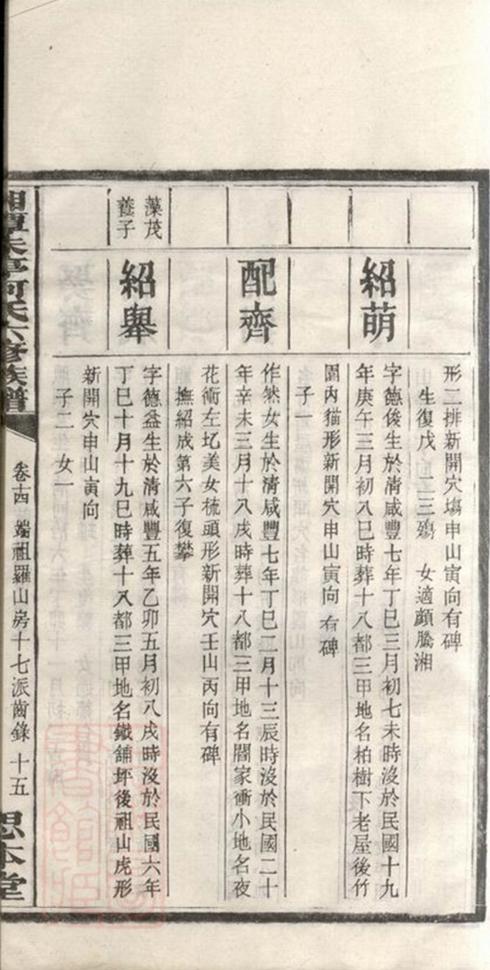 形二排新開穴塲申山寅向有碑
生復戊 二三殤 女適顔騰湘
紹萌
字德俊生於清咸豐七年丁巳三月初七未時沒於民國十九
年庚午三月初八巳時葬十八都三甲地名柏樹下老屋後竹
園內猫形新開穴申山寅向 有碑
子一
配齊
作然女生於清咸豐七年丁巳二月十三辰時沒於民國二十
年辛未三月十八戌時葬十八都三甲地名閻家衝小地名夜
花衖左圪美女梳頭形新開穴壬山丙向有碑
撫紹成第六子復攀
藻茂
養子
紹舉
字德益生於清咸豐五年乙卯五月初八戌時沒於民國六年
丁巳十月十九巳時葬十八都三甲地名鐵舖坪後祖山虎形
新開穴申山寅向
子二 女一
湘潭朱亭何氏六修族譜
卷十四 端祖羅山房十七派齒錄 十五
思本堂